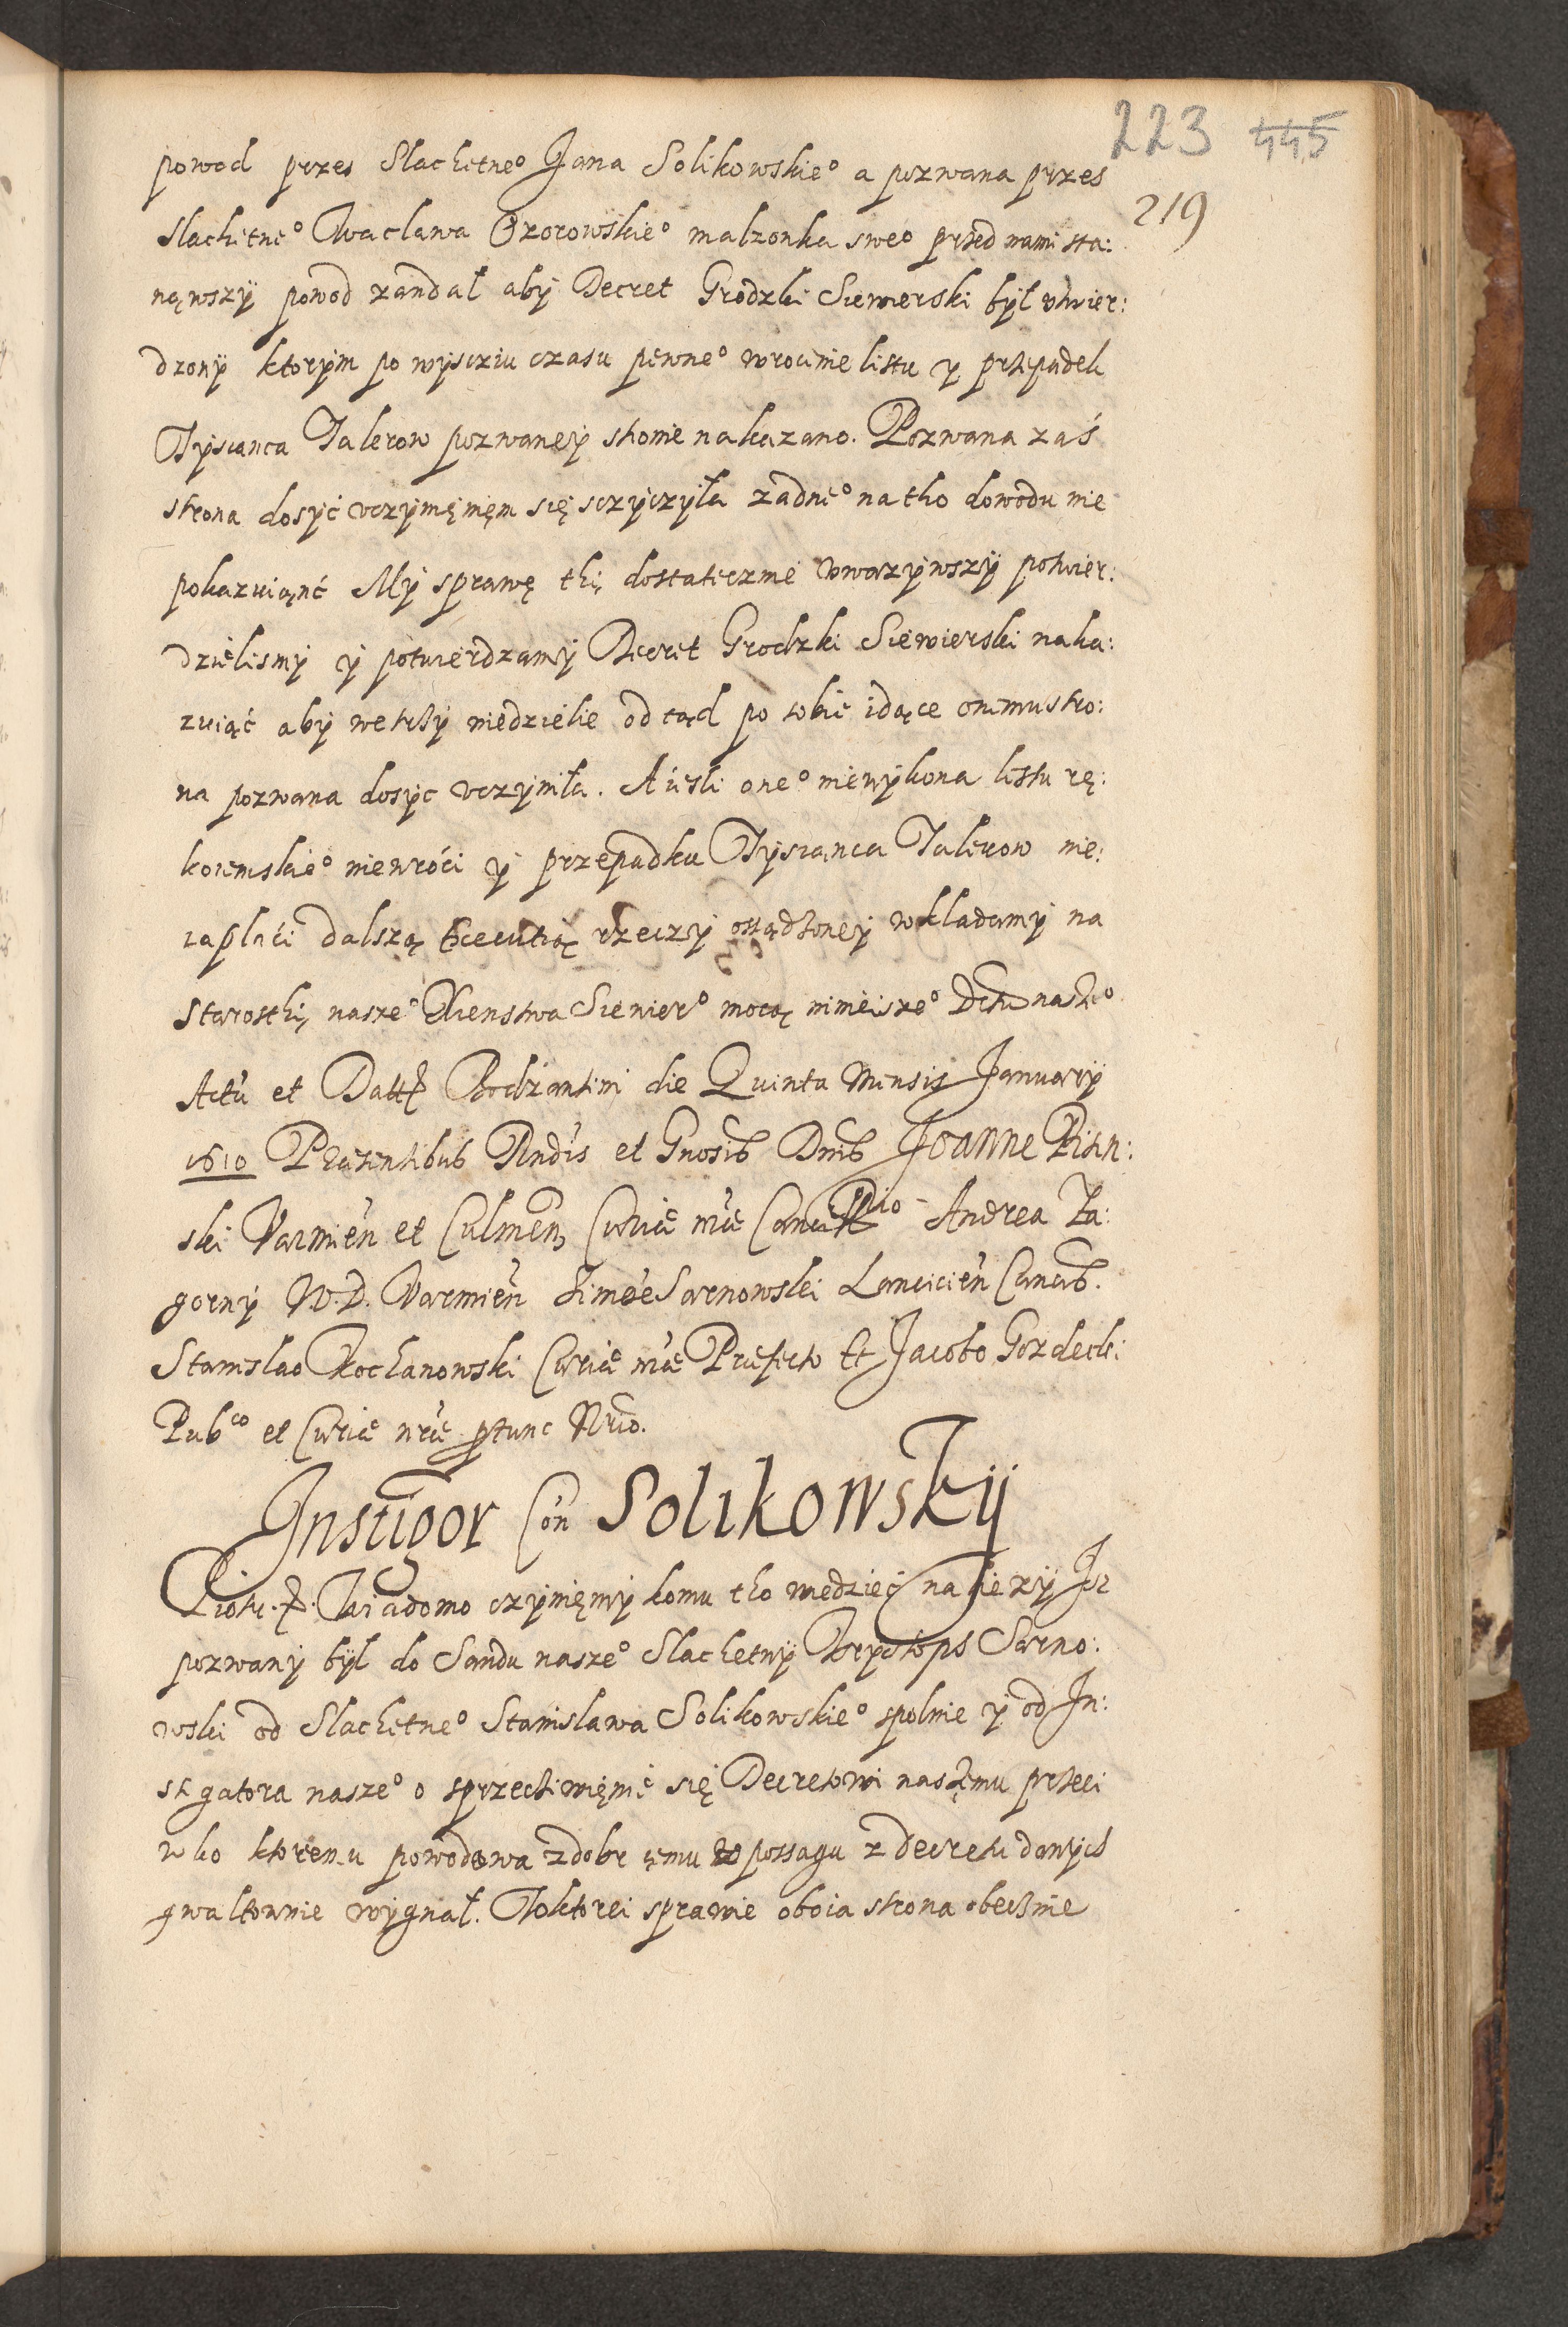 223 445
219
powod przes Slachetne° Jana Solikowskie° a pozwana przes
Slachetne° Waclawa Ozorowskie° malzonka swe° przed nami sta:
nąwszÿ powod zandał abÿ Decret Grodzki Siewierski bÿł utwier:
dzonÿ ktorÿm po wÿscziu czasu pewne° wrocenie listu ÿ przepadek
Tÿsianca Talerow pozwaneÿ stronie nakazano. Pozwana zaś
strona dosÿć uczÿnięnięm się sczÿczÿła zadne° na tho dowodu nie
pokazuiąnć Mÿ sprawę thę dostatecznie uwazÿwszÿ potwier:
dzielismÿ ÿ potwierdzamÿ Decret Grodzki Siewierski naka:
zuiąć abÿ we trzÿ niedzielie od tąd po sobie idące onemu stro:
na pozwana dosÿc uczÿniła. A iesli one° niewÿkona listu rę:
koiemskie° niewróci ÿ przepadku Tÿsianca Talerow nie:
zaplaći dalszą Execution rzeczÿ osądzoneÿ wkladamÿ na
Starosthę nasze° Xienstwa Siewier° mocą ninieisze° Dctu nasze°
Actu et Datt Bodzantini die Quinta Mensis Januarÿ
1610 Præsentibus Rndis et Gnosib Dnis Joanne Pisin:
ski Varmien et Culmen Curiæ nræ Cancellrio Andrea Za:
gornÿ W. D. Varmien Simoe Sarnowski Lancicien Cancib.
Stanislao Kochanowski Curiæ nræ Præfecto Et Jacobo Gozdecki
Pubco et Curiæ nræ ptunc Nrio.
Instigor Con Solikowskÿ
Piotr. Wiadomo czÿnięmÿ komu tho wiedzieć nalezÿ Jsz
pozwanÿ bÿl do Sandu nasze° Slachetnÿ Krzÿstoph Sarno:
wski od Slachetne° Stanislawa Solikowskie° spolnie ÿ od In:
stÿgatora nasze° o sprzeciwięnie się Decretowi naszęmu przeci
wko ktoremu powodowa z dobr ęmu w possagu z decretu danÿch
gwaltownie wÿgnał. W ktorei sprawie oboia strona obecznie